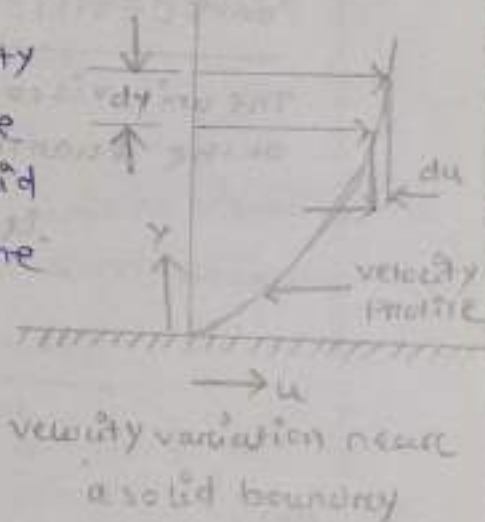 ty
dy
e
du
id
y
ne
velocity
Profile
u
velocity variation neare
a solid boundrey